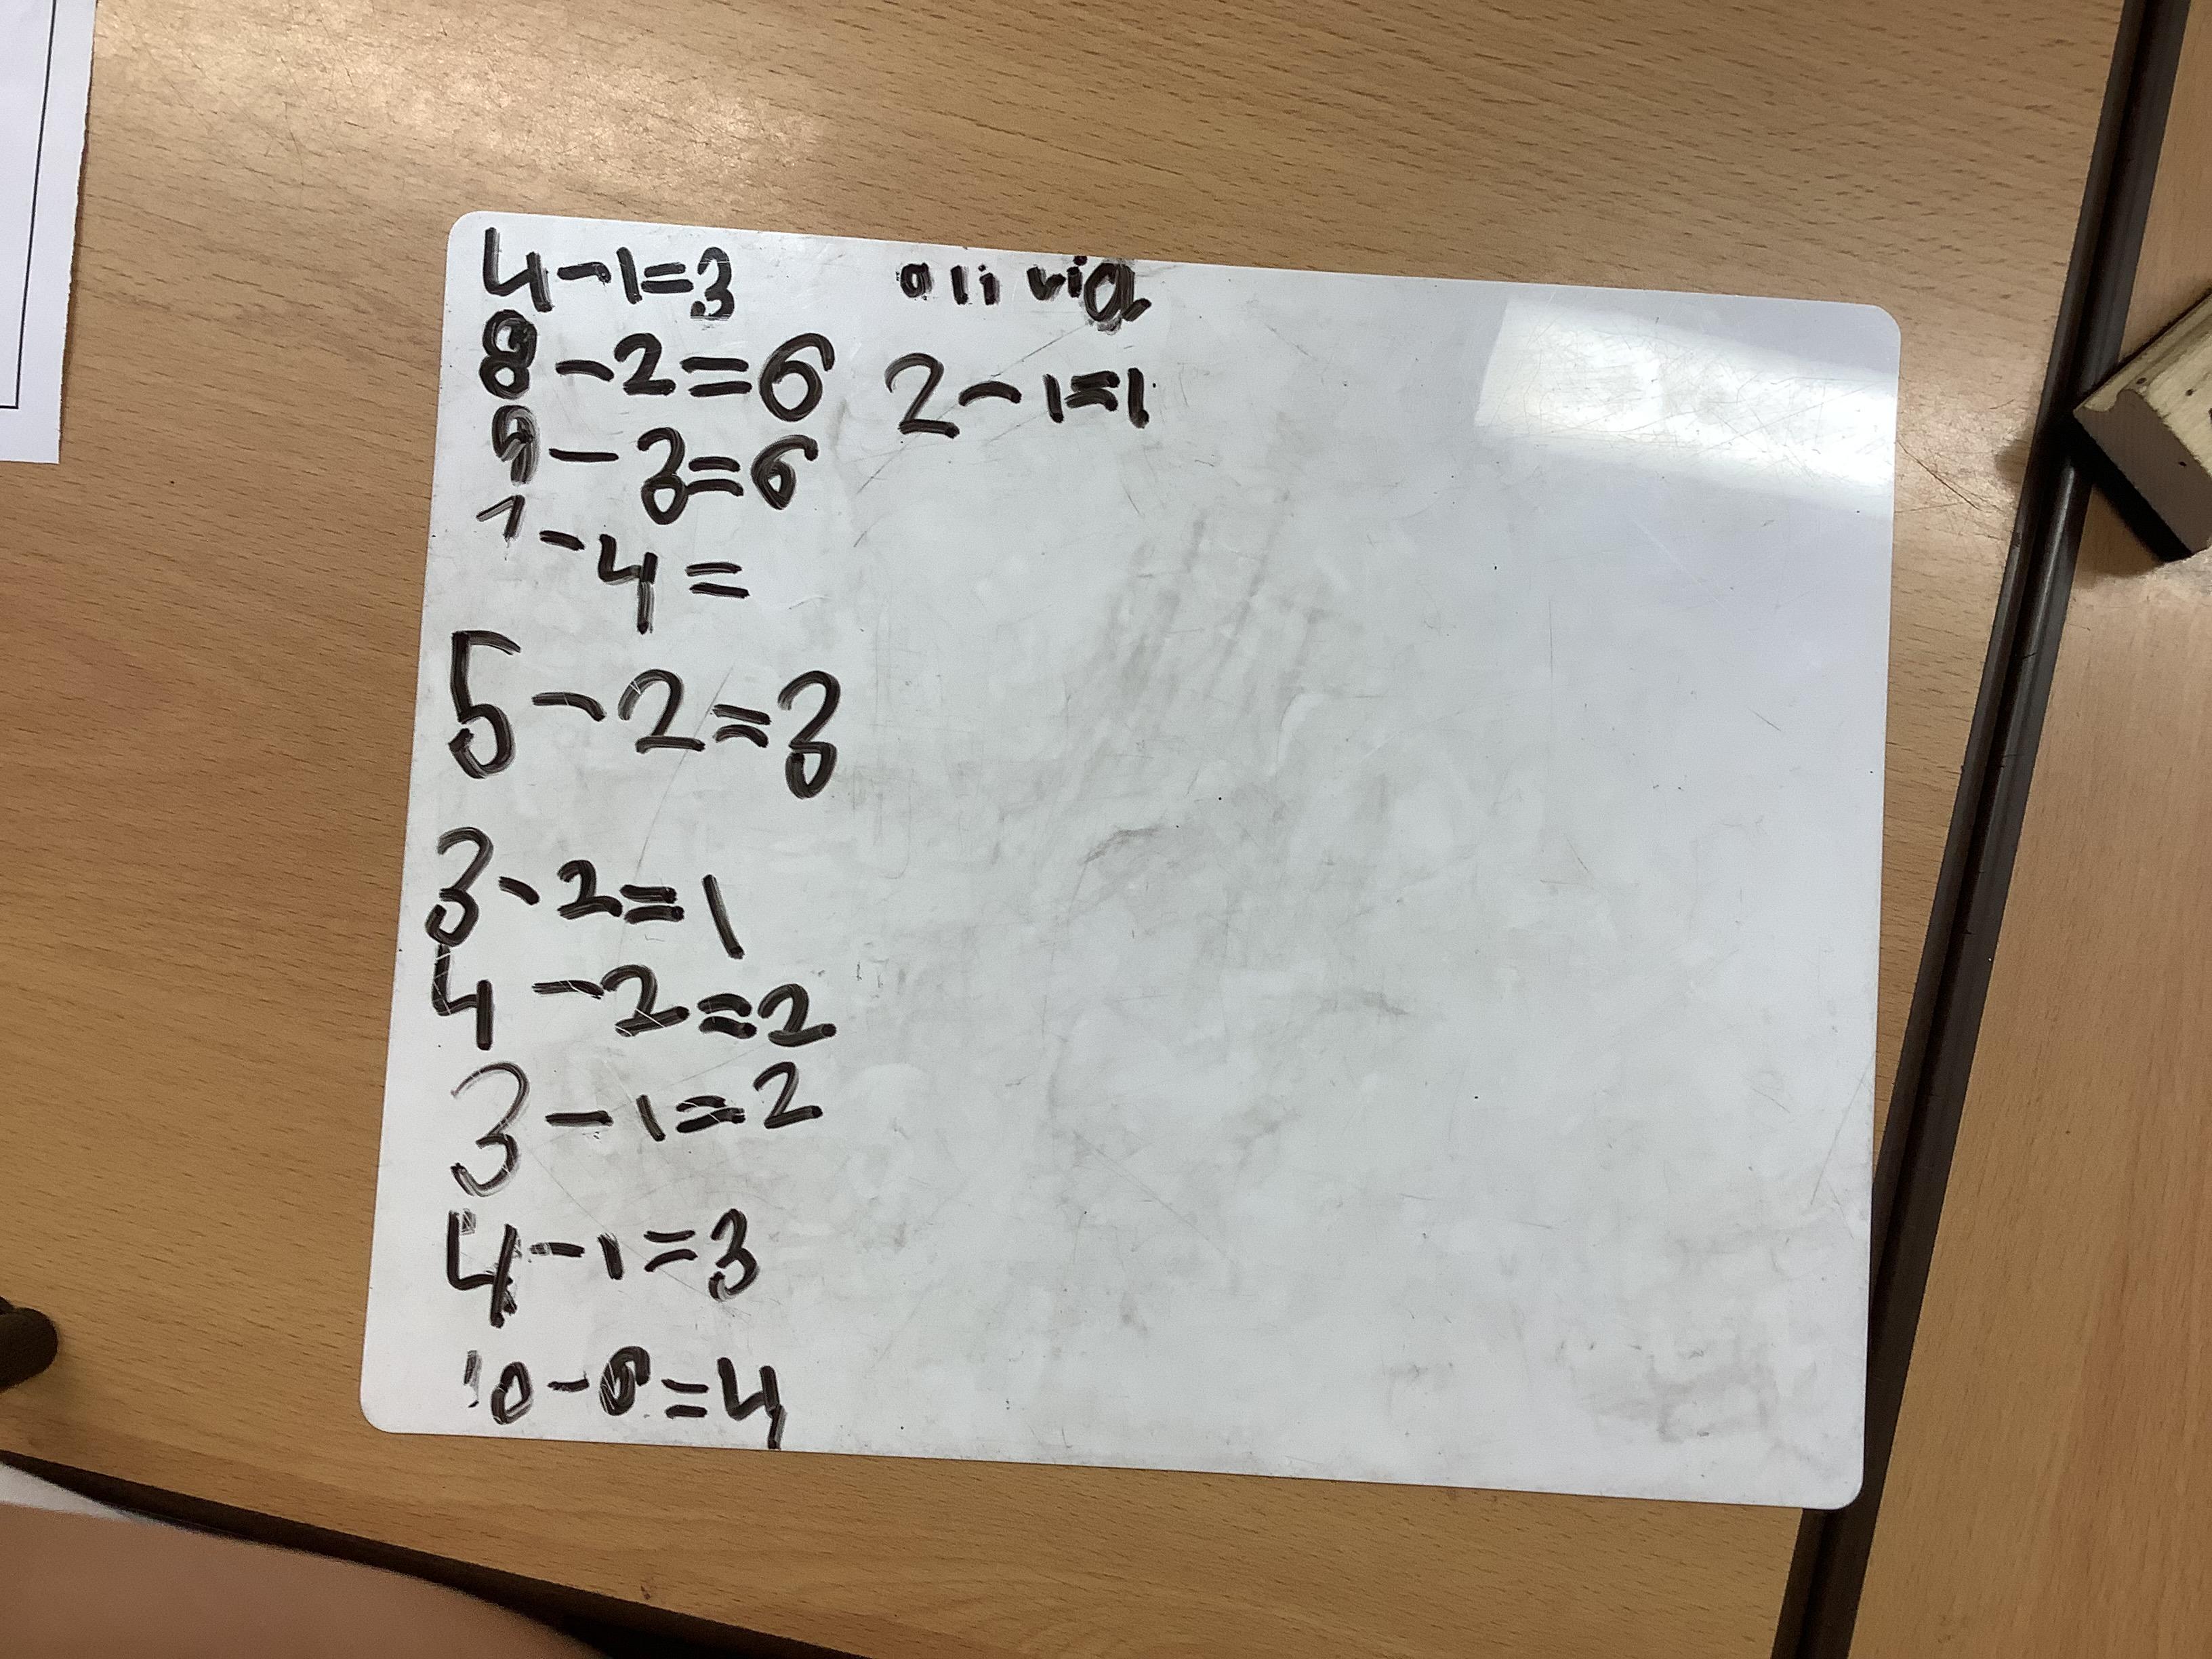 4-1=3
olivia
8-2=6
2-1=1
9-3=6
7-4=
5-2=3
3-2=1
4-2=2
3-1=2
4-1=3
10-6=4